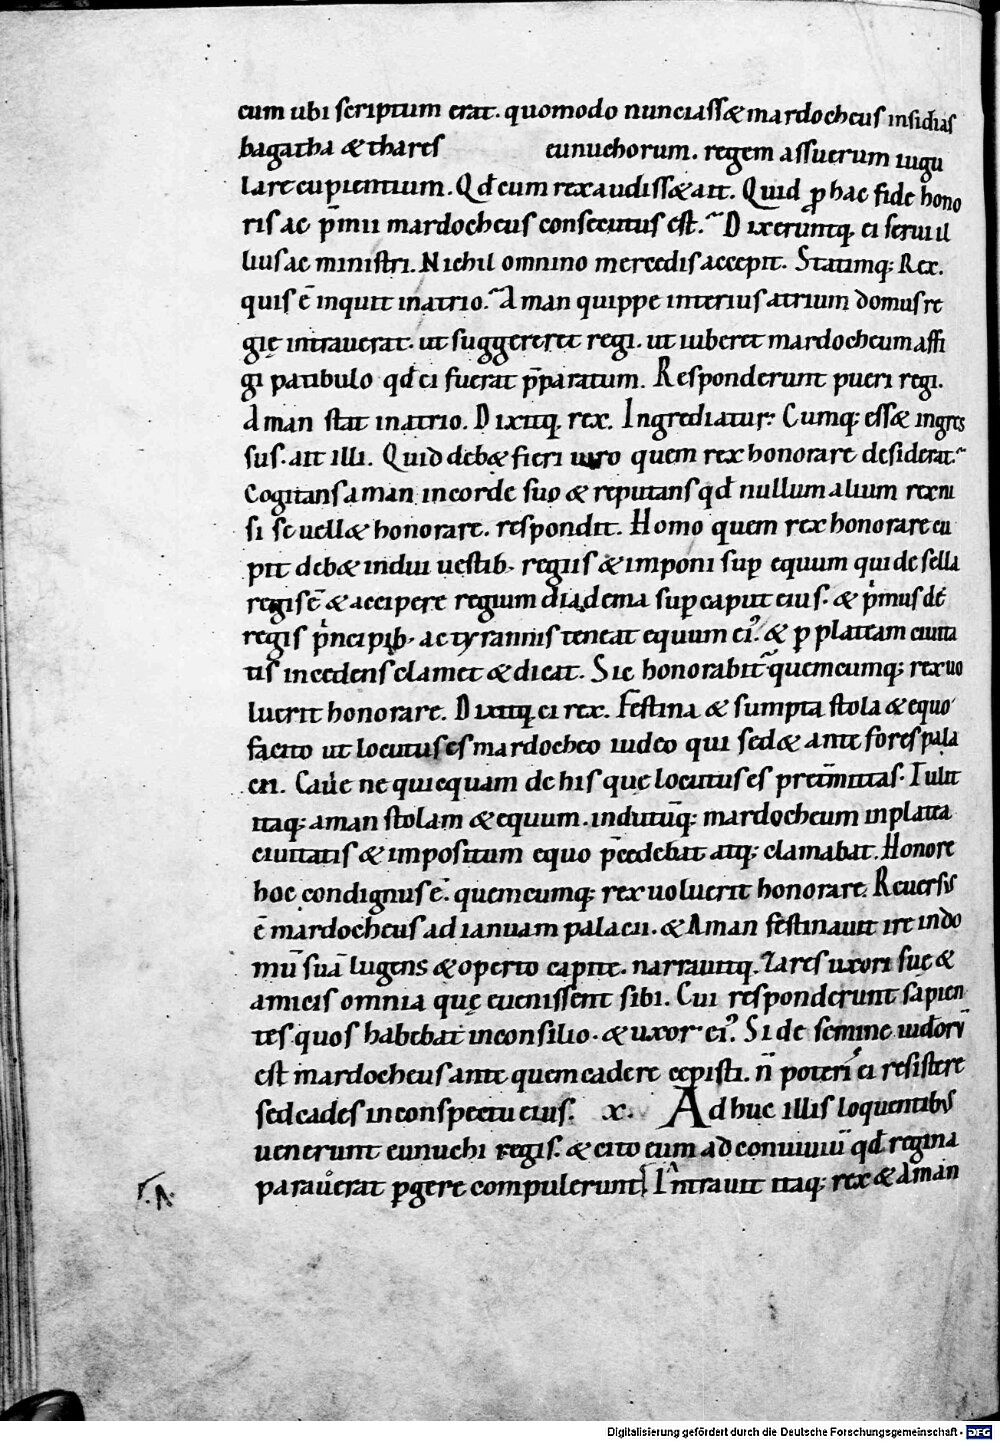 cum ubi scriptum erat. quomodo nunciass& mardocheus insidias
bagatha & thares eunuchorum. regem assuerum iugu
lare cupientium. Qđ cum rex audiss& ait. Quid ꝓ hac fide hono
ris ac p̄mii mardocheus consecutus est. Dixeruntq; ei serui il
lius ac ministri. Nichil omnino mercedis accepit. Statimq; Rex.
quis ē inquit in atrio. Aman quippe interius atrium domus re
gię intrauerat. ut suggereret regi. ut iuberet mardocheum affi
gi patibulo qđ ei fuerat p̄paratum. Responderunt pueri regi.
Aman stat in atrio. Dixitq; rex. Ingrediatur. Cumq; ess& ingres
sus. ait illi. Quid deb& fieri uiro quem rex honorare desiderat.
Cogitans aman in corde suo & reputans qđ nullum alium rex ni
si se uell& honorare. respondit. Homo quem rex honorare cu
pit deb& indui uestib; regiis & imponi suꝑ equum qui de sella
regis ē & accipere regium diadema suꝑ caput eius. & pͥmus de
regis pͥncipib; ac tyrannis teneat equum eiꝰ. & ꝑ plateam ciuita
tis incedens clamet & dicat. Sic honorabit̃ quemcumq; rex uo
luerit honorare. Dixitq; ei rex. Festina & sumpta stola & equo
facito ut locutus es mardocheo iudeo qui sed& ante fores pala
cii. Caue ne quicquam de his quę locutus es pret̄mittas. Tulit
itaq; aman stolam & equum. indutūq; mardocheum in platea
ciuitatis & impositum equo p̄cedebat atq; clamabat. Honore
hoc condignus ē. quemcumq; rex uoluerit honorare. Reuersus
ē mardocheus ad ianuam palacii. & Aman festinauit ire in do
mū suā lugens & operto capite. narrauitq; Zares uxori suę &
amicis omnia quę euenissent sibi. Cui responderunt sapien
tes quos habebat in consilio. & uxor eiꝰ. Si de semine iudeorū
est mardocheus ante quem cadere cepisti. n̄ poteri' ei resistere
sed cades in conspectu eius. x. Adhuc illis loquentibus
uenerunt eunuchi regis. & cito eum ad conuiuiū qđ regina
parauerat ꝑgere compulerunt Intrauit itaq; rex & Aman
Digitalisierung gefördert durch die Deutsche Forschungsgemeinschaft - DFG